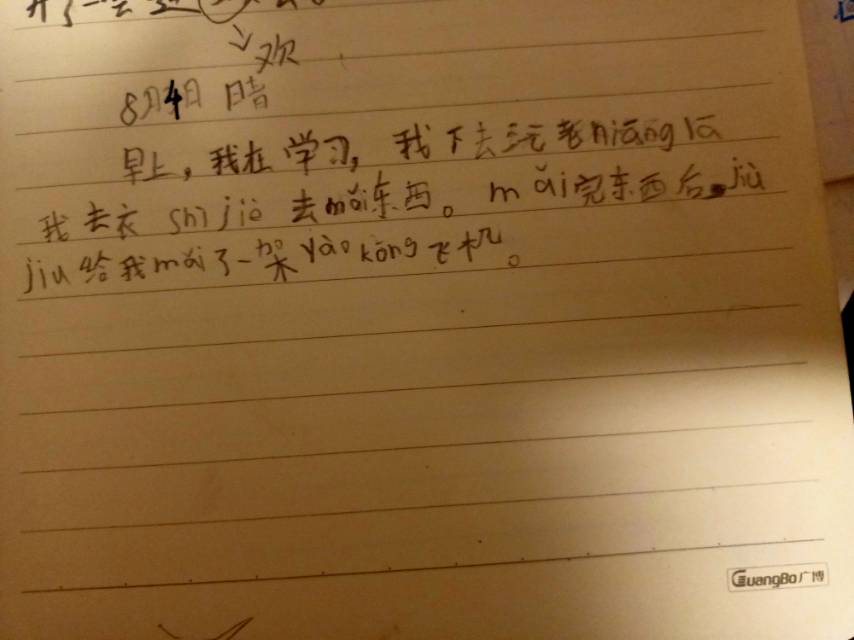 开了一会
欢
8月4日 晴
早上，我在学习，我下去玩老niāng lā
我去衣 shì jiè 去mǎi东西。mǎi完东西后jiù
jiu给我mǎi了一架yào kōng飞机。
GuangBo广博